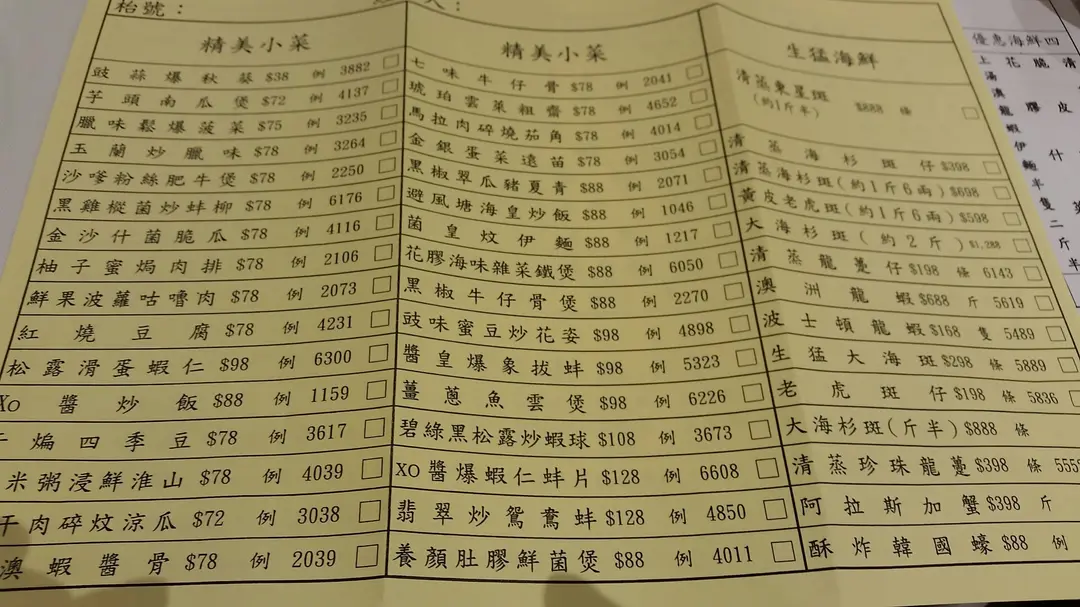 枱號：
人：
精美小菜
豉蒜爆秋葵 $38 例 3882
芋頭南瓜煲 $72 例 4137
臘味鬆爆菠菜 $75 例 3235
玉蘭炒臘味 $78 例 3264
沙嗲粉絲肥牛煲 $78 例 2250
黑雞樅菌炒蚌柳 $78 例 6176
金沙什菌脆瓜 $78 例 4116
柚子蜜焗肉排 $78 例 2106
鮮果菠蘿咕嚕肉 $78 例 2073
紅燒豆腐 $78 例 4231
松露滑蛋蝦仁 $98 例 6300
XO醬炒飯 $88 例 1159
煸四季豆 $78 例 3617
米粥浸鮮淮山 $78 例 4039
干肉碎炆涼瓜 $72 例 3038
澳蝦醬骨 $78 例 2039
精美小菜
七味牛仔骨 $78 例 2041
琥珀雲菜粗齋 $78 例 4652
馬拉肉碎燒茄角 $78 例 4014
金銀蛋菜遠苗 $78 例 3054
黑椒翠瓜豬夏青 $88 例 2071
避風塘海皇炒飯 $88 例 1046
菌皇炆伊麵 $88 例 1217
花膠海味雜菜鐵煲 $88 例 6050
黑椒牛仔骨煲 $88 例 2270
豉味蜜豆炒花姿 $98 例 4898
醬皇爆象拔蚌 $98 例 5323
薑蔥魚雲煲 $98 例 6226
碧綠黑松露炒蝦球 $108 例 3673
XO醬爆蝦仁蚌片 $128 例 6608
翡翠炒鴛鴦蚌 $128 例 4850
養顏肚膠鮮菌煲 $88 例 4011
生猛海鮮
清蒸東星斑 $888 條
(約1斤半)
清蒸海杉斑仔 $398
清蒸海杉斑(約1斤6兩) $698
黃皮老虎斑(約1斤6兩) $598
大海杉斑(約2斤) $1,288
清蒸龍躉仔 $198 條 6143
澳洲龍蝦 $688 斤 5619
波士頓龍蝦 $168 隻 5489
生猛大海斑 $298 條 5889
老虎斑仔 $198 條 5836
大海杉斑(斤半) $888 條
清蒸珍珠龍躉 $398 條 555
阿拉斯加蟹 $398 斤
酥炸韓國蠔 $88 例
優惠海鮮四
上湯澳龍蝦伊麵半隻二斤半
花膠什
脆皮
清